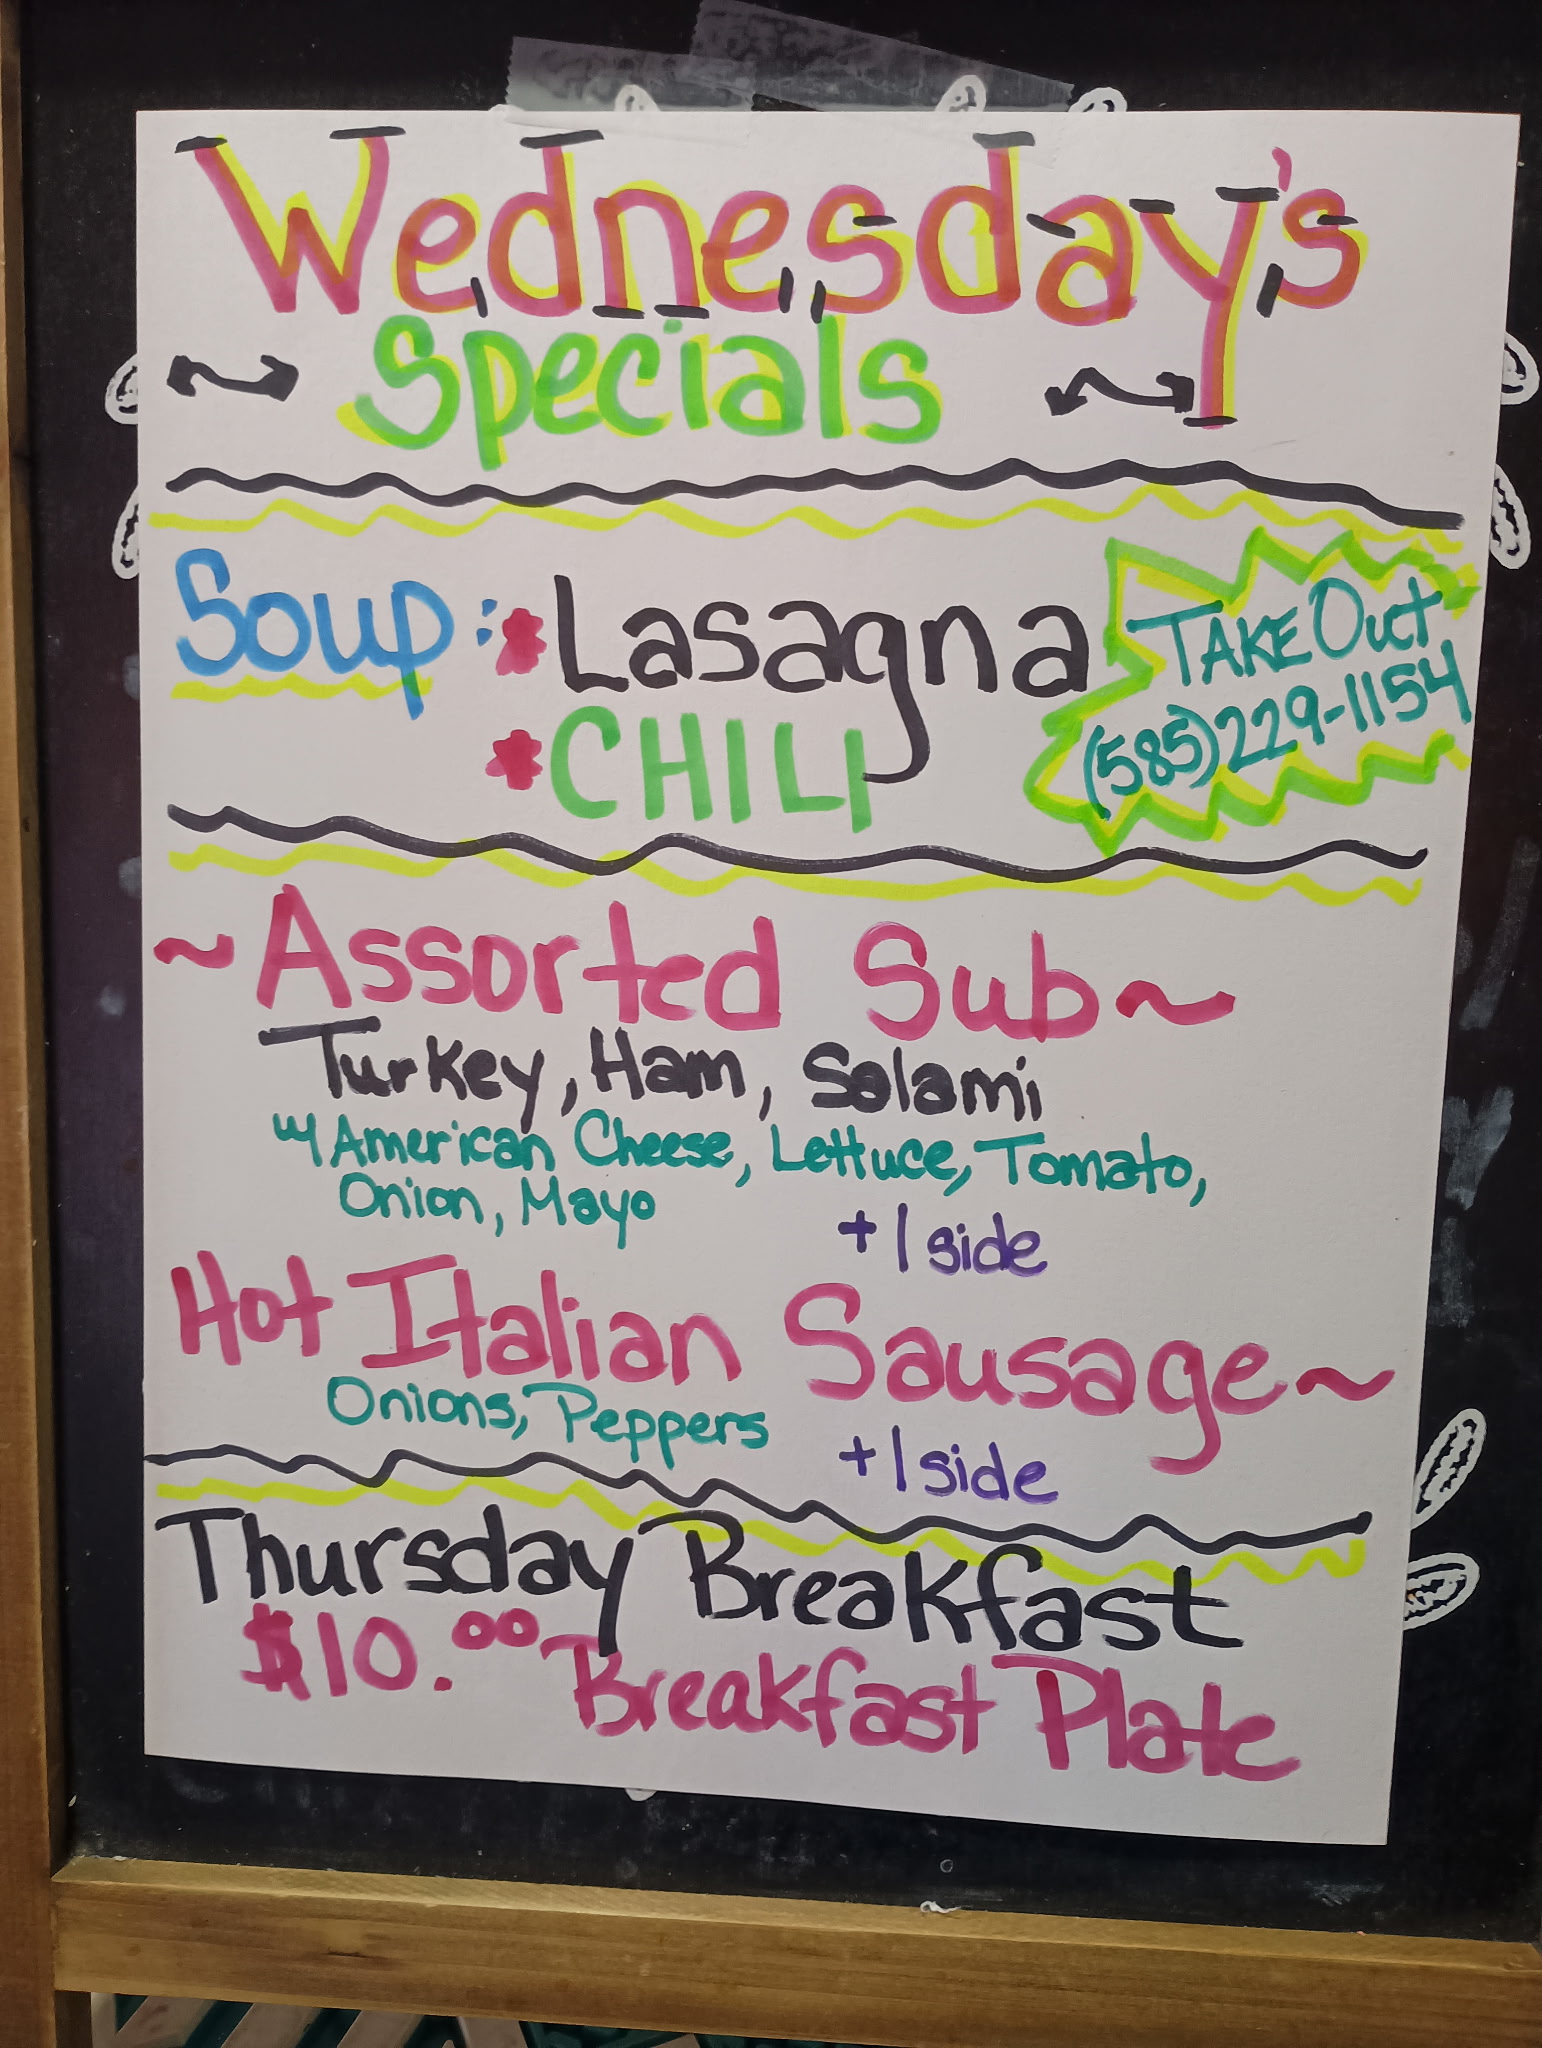 Wednesday's
Specials
Soup: * Lasagna
* CHILI
TAKE Out
(585)229-1154
~Assorted Sub~
Turkey, Ham, Salami
w/ American Cheese, Lettuce, Tomato,
Onion, Mayo
+1 side
Hot Italian Sausage~
Onions, Peppers
+1 side
Thursday Breakfast
$10.00 Breakfast Plate